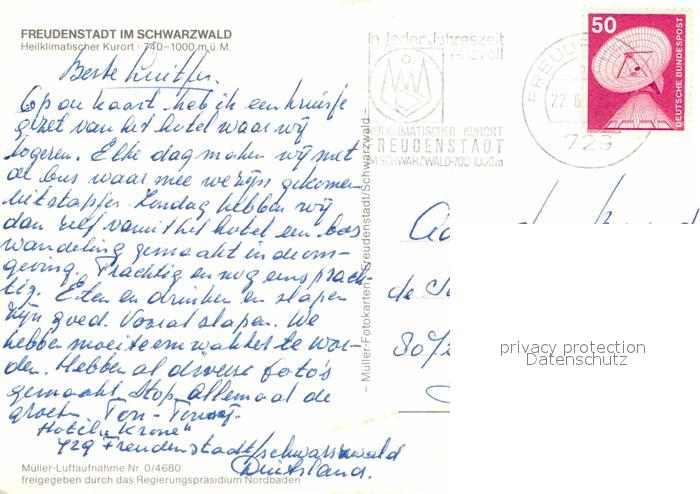 FREUDENSTADT IM SCHWARZWALD
Heilklimatischer Kurort · 740–1000 m ü. M.
In jeder Jahreszeit
reizvoll
HEILKLIMATISCHER KURORT
FREUDENSTADT
IM SCHWARZWALD·700-1000m
FREUDEN
22.6
729
50
DEUTSCHE BUNDESPOST
ERDFUNKSTELLE
Beste
Op ou kaart heb ik een kruisje
gezet van het hotel waar wij
logeren. Elke dag maken wij met
de bus waar mee we zijn gekomen
uitstapjes. Zondag hebben wij
dan zelf vanuit het hotel een bos
wandeling gemaakt in de om-
geving. Prachtig en nog eens prach-
tig. Eten en drinken en slapen
zijn goed. Vooral slapen. We
hebben moeite om wakker te wor-
den. Hebben al diverse foto's
gemaakt. Stop allemaal de
groeten. Ton-
Hotel "Krone"
729 Freudenstadt/schwarzwald
Duitsland.
Müller-Luftaufnahme Nr. 0/4680
freigegeben durch das Regierungspräsidium Nordbaden
– Müller-Fotokarten, Freudenstadt/Schwarzwald –
de
privacy protection
Datenschutz